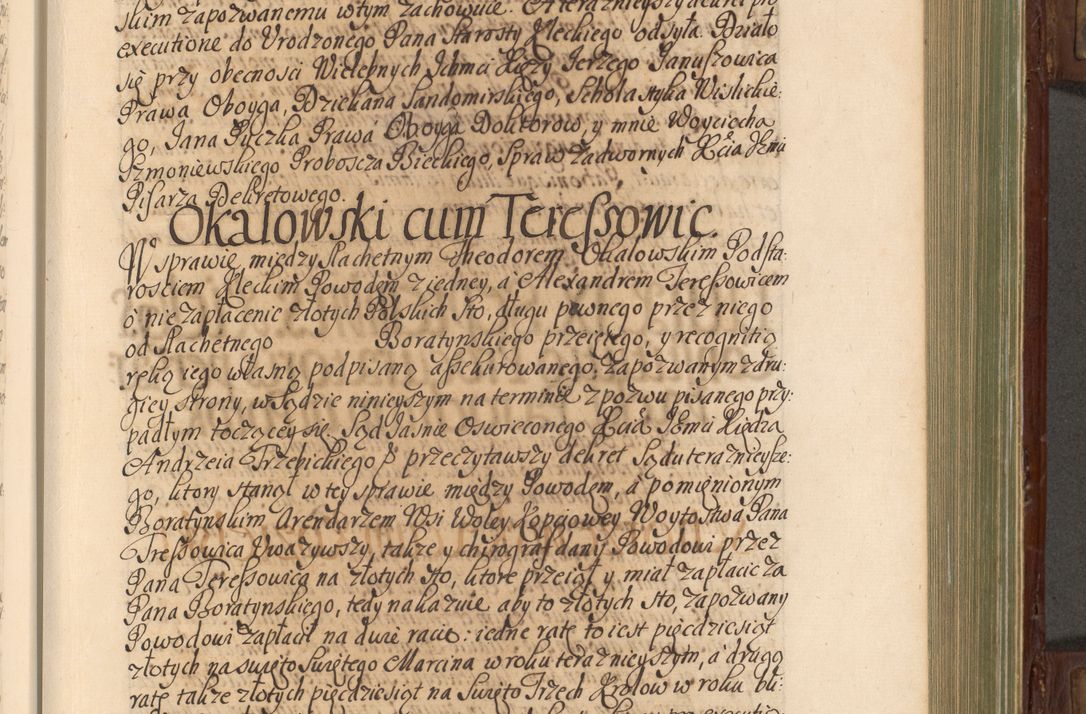 skim zapozwanemu w tym zachowuie. A teraznieyszy dekret pro
executione do Urodzonego Pana Starosty Kleckiego odsyła. Działo
się przy obecnosci Wielebnych Ichmci Xięży Jerzego Januszowica
Prawa Oboyga, Dziekana Sandomirskiego, Scholastyka Wislickie:
go, Jana Pyczka Prawa Oboyga Doktorow, y mnie Woyciecha
Szmoniewskiego Proboscza Bieckiego, Spraw Zadwornych Xcia Jmci
Pisarza Dekretowego.
Okalowski cum Teressowic.
W sprawie między Slachetnym Theodorem Okalowskim Podsta:
rosciem Kleckim Powodem z iedney, a Alexandrem Teressowicem
o niezapłacenie złotych Polskich sto, długu pewnego przez niego
od Slachetnego Boratynskiego przeiętego, y recognitią
ręką iego własną podpisaną assekurowanego, zapozwanym z dru:
giey strony, w Sądzie ninieyszym na terminie z pozwu pisanego przy:
padłym toczącey się. Sąd Jasnie Oswieconego Xcia Jchmci Xiędza
Andrzeia Trzebickiego przeczytawszy dekret Sądu teraznieysze:
go, ktory stanął w tey sprawie między Powodem, a pomienionym
Boratynskim Arendarzem Wsi Woley Kopciowey Woytostwa Pana
Tressowica Uwazywszy, także y chirograf dany Powodowi przez
Pana Teressowica na złotych sto, ktore przeiął y miał zapłacic za
Pana Boratynskiego, tedy nakazuie aby to złotych sto, zapozwany
Powodowi zapłacił na dwie racie: iedne ratę to iest pięcdziesiąt
złotych na swięto Swiętego Marcina w roku teraznieyszym, a drugą
ratę także złotych pięcdziesiąt na Swięto Trzech Krolow w roku bli: